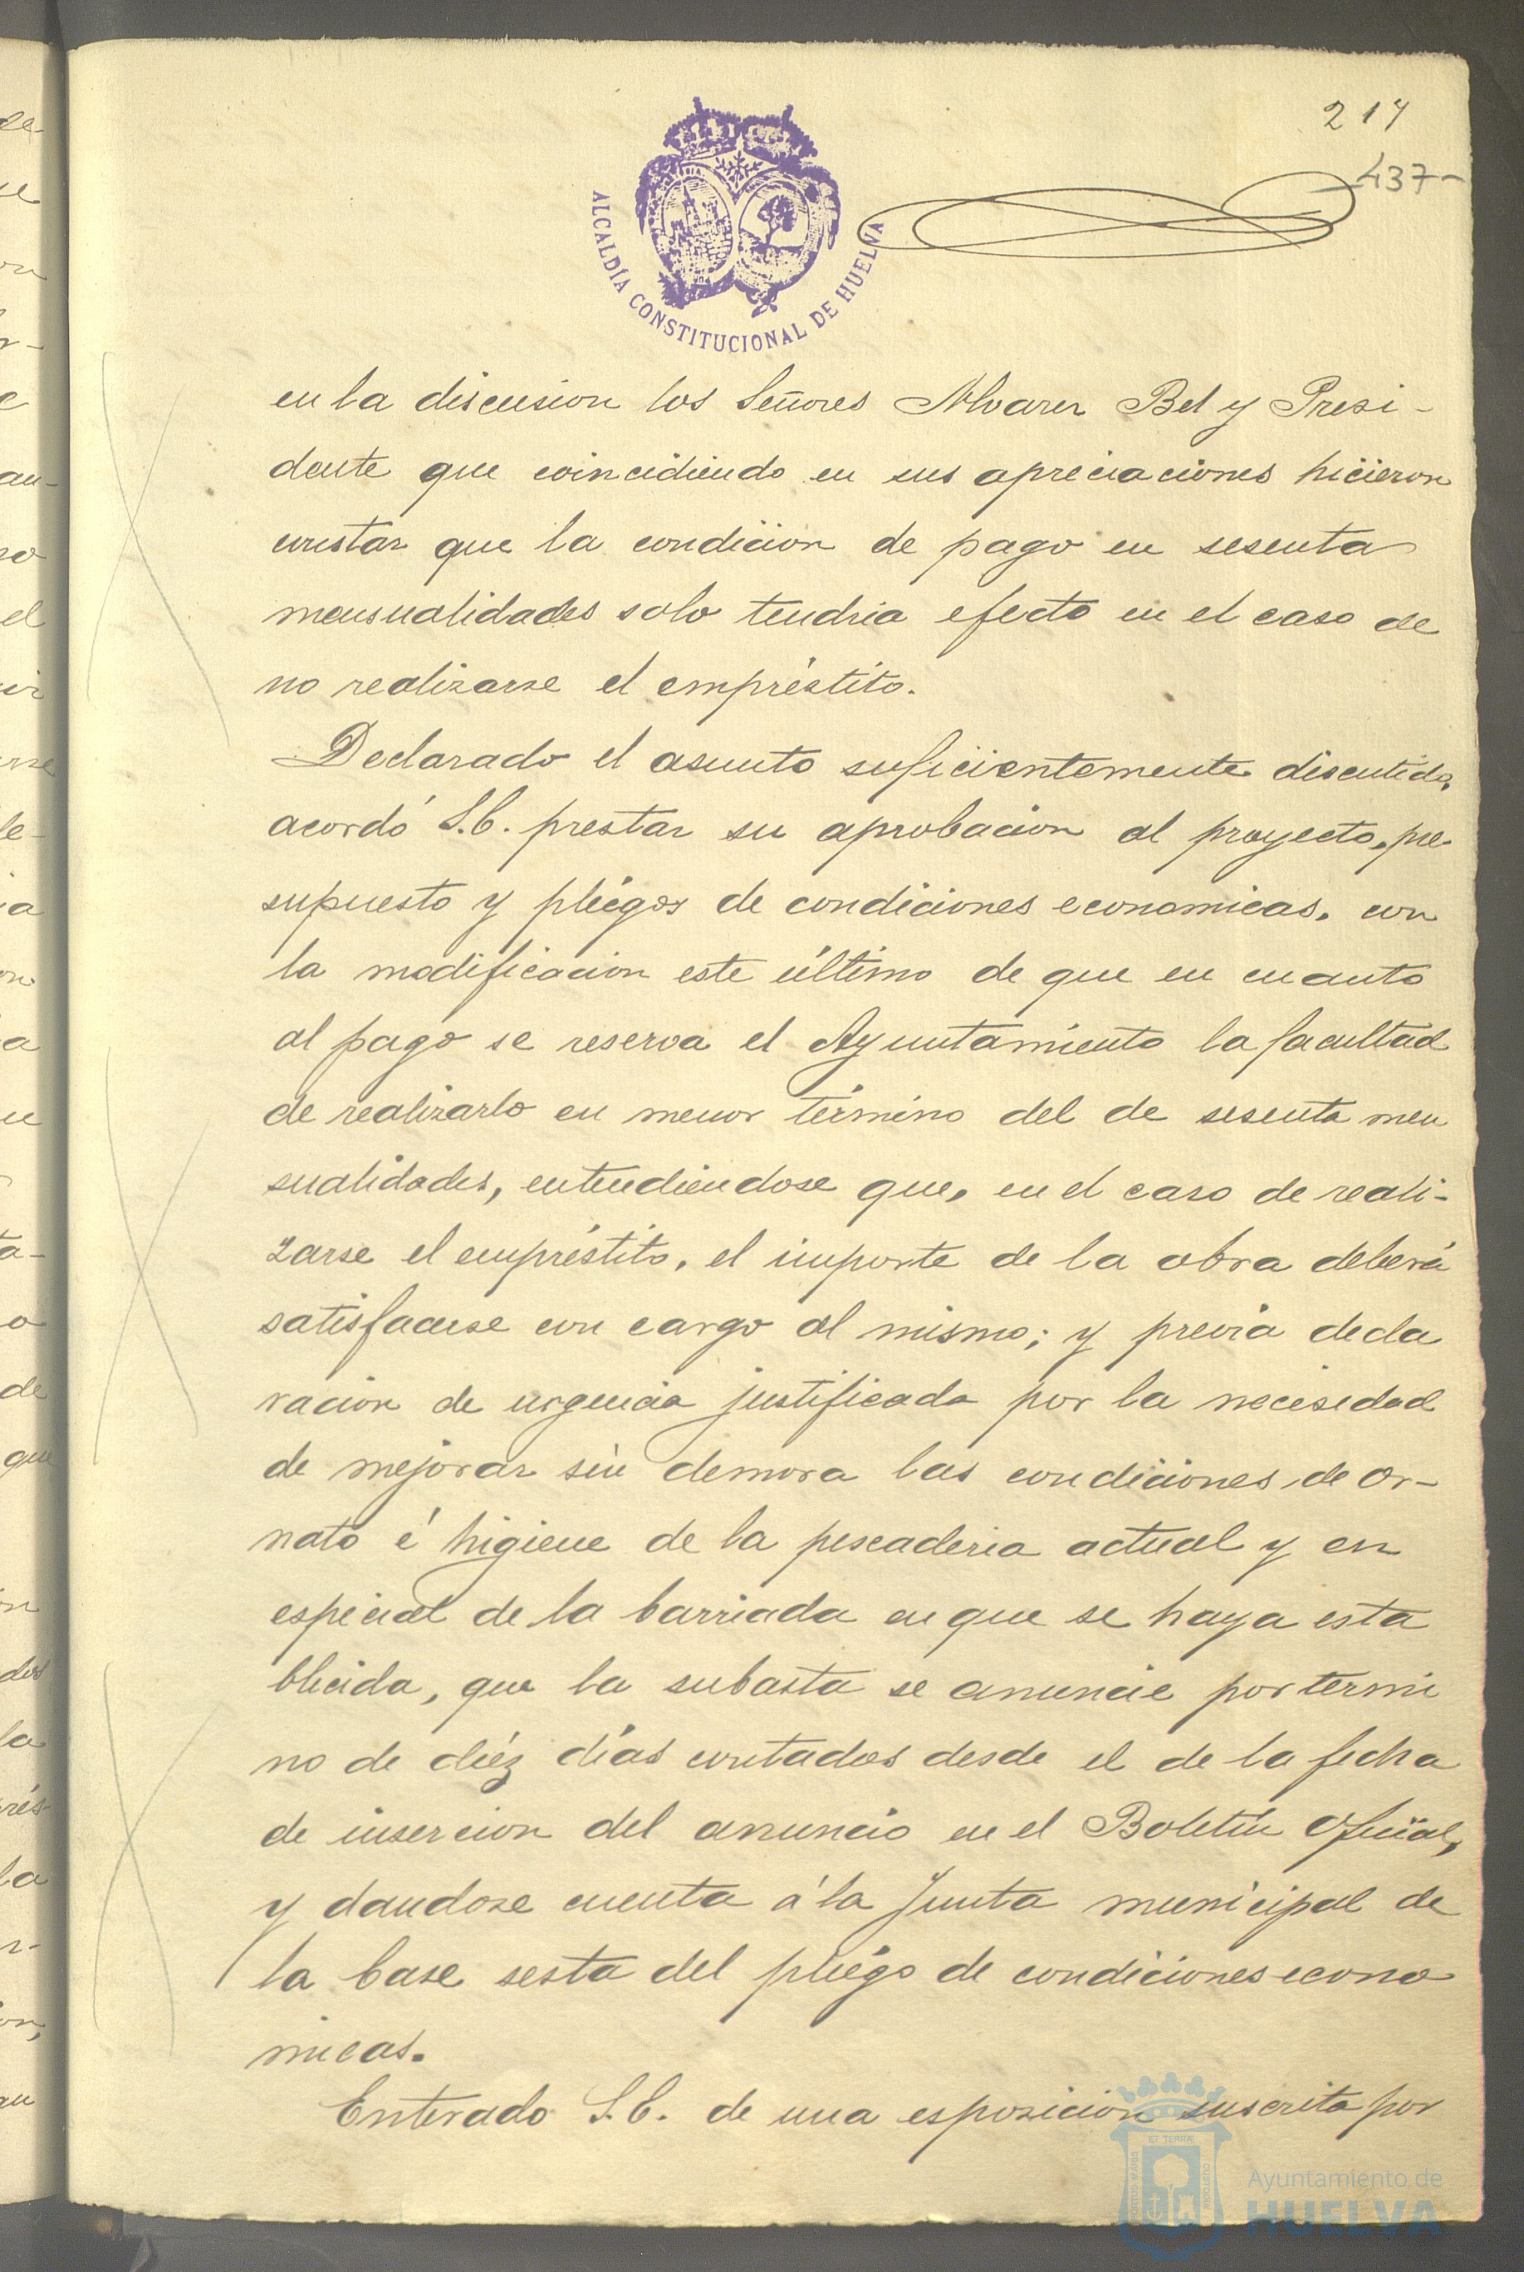 217
-437-
ALCALDÍA CONSTITUCIONAL DE HUELVA
en la discusion los Señores Alvarez Bel y Presi-
dente que coincidiendo en sus apreciaciones hicieron
constar que la condicion de pago en sesenta
mensualidades solo tendria efecto en el caso de
no realizarse el empréstito.
Declarado el asunto suficientemente discutido,
acordó S.C. prestar su aprobacion al proyecto, pre
supuesto y pliegos de condiciones economicas, con
la modificacion este último de que en cuanto
al pago se reserva el Ayuntamiento la facultad
de realizarlo en menor término del de sesenta men
sualidades, entendiendose que, en el caso de reali-
zarse el empréstito, el importe de la obra deberá
satisfacerse con cargo al mismo; y previa decla
racion de urgencia justificada por la necesidad
de mejorar sin demora las condiciones de or-
nato é higiene de la pescaderia actual y en
especial de la barriada en que se haya esta
blecida, que la subasta se anuncie por termi
no de diéz días contados desde el de la fecha
de insercion del anuncio en el Boletin Oficial,
y dandose cuenta á la Junta municipal de
la base sesta del pliego de condiciones econo
micas.
Enterado S.C. de una esposicion suscrita por
Ayuntamiento de
HUELVA